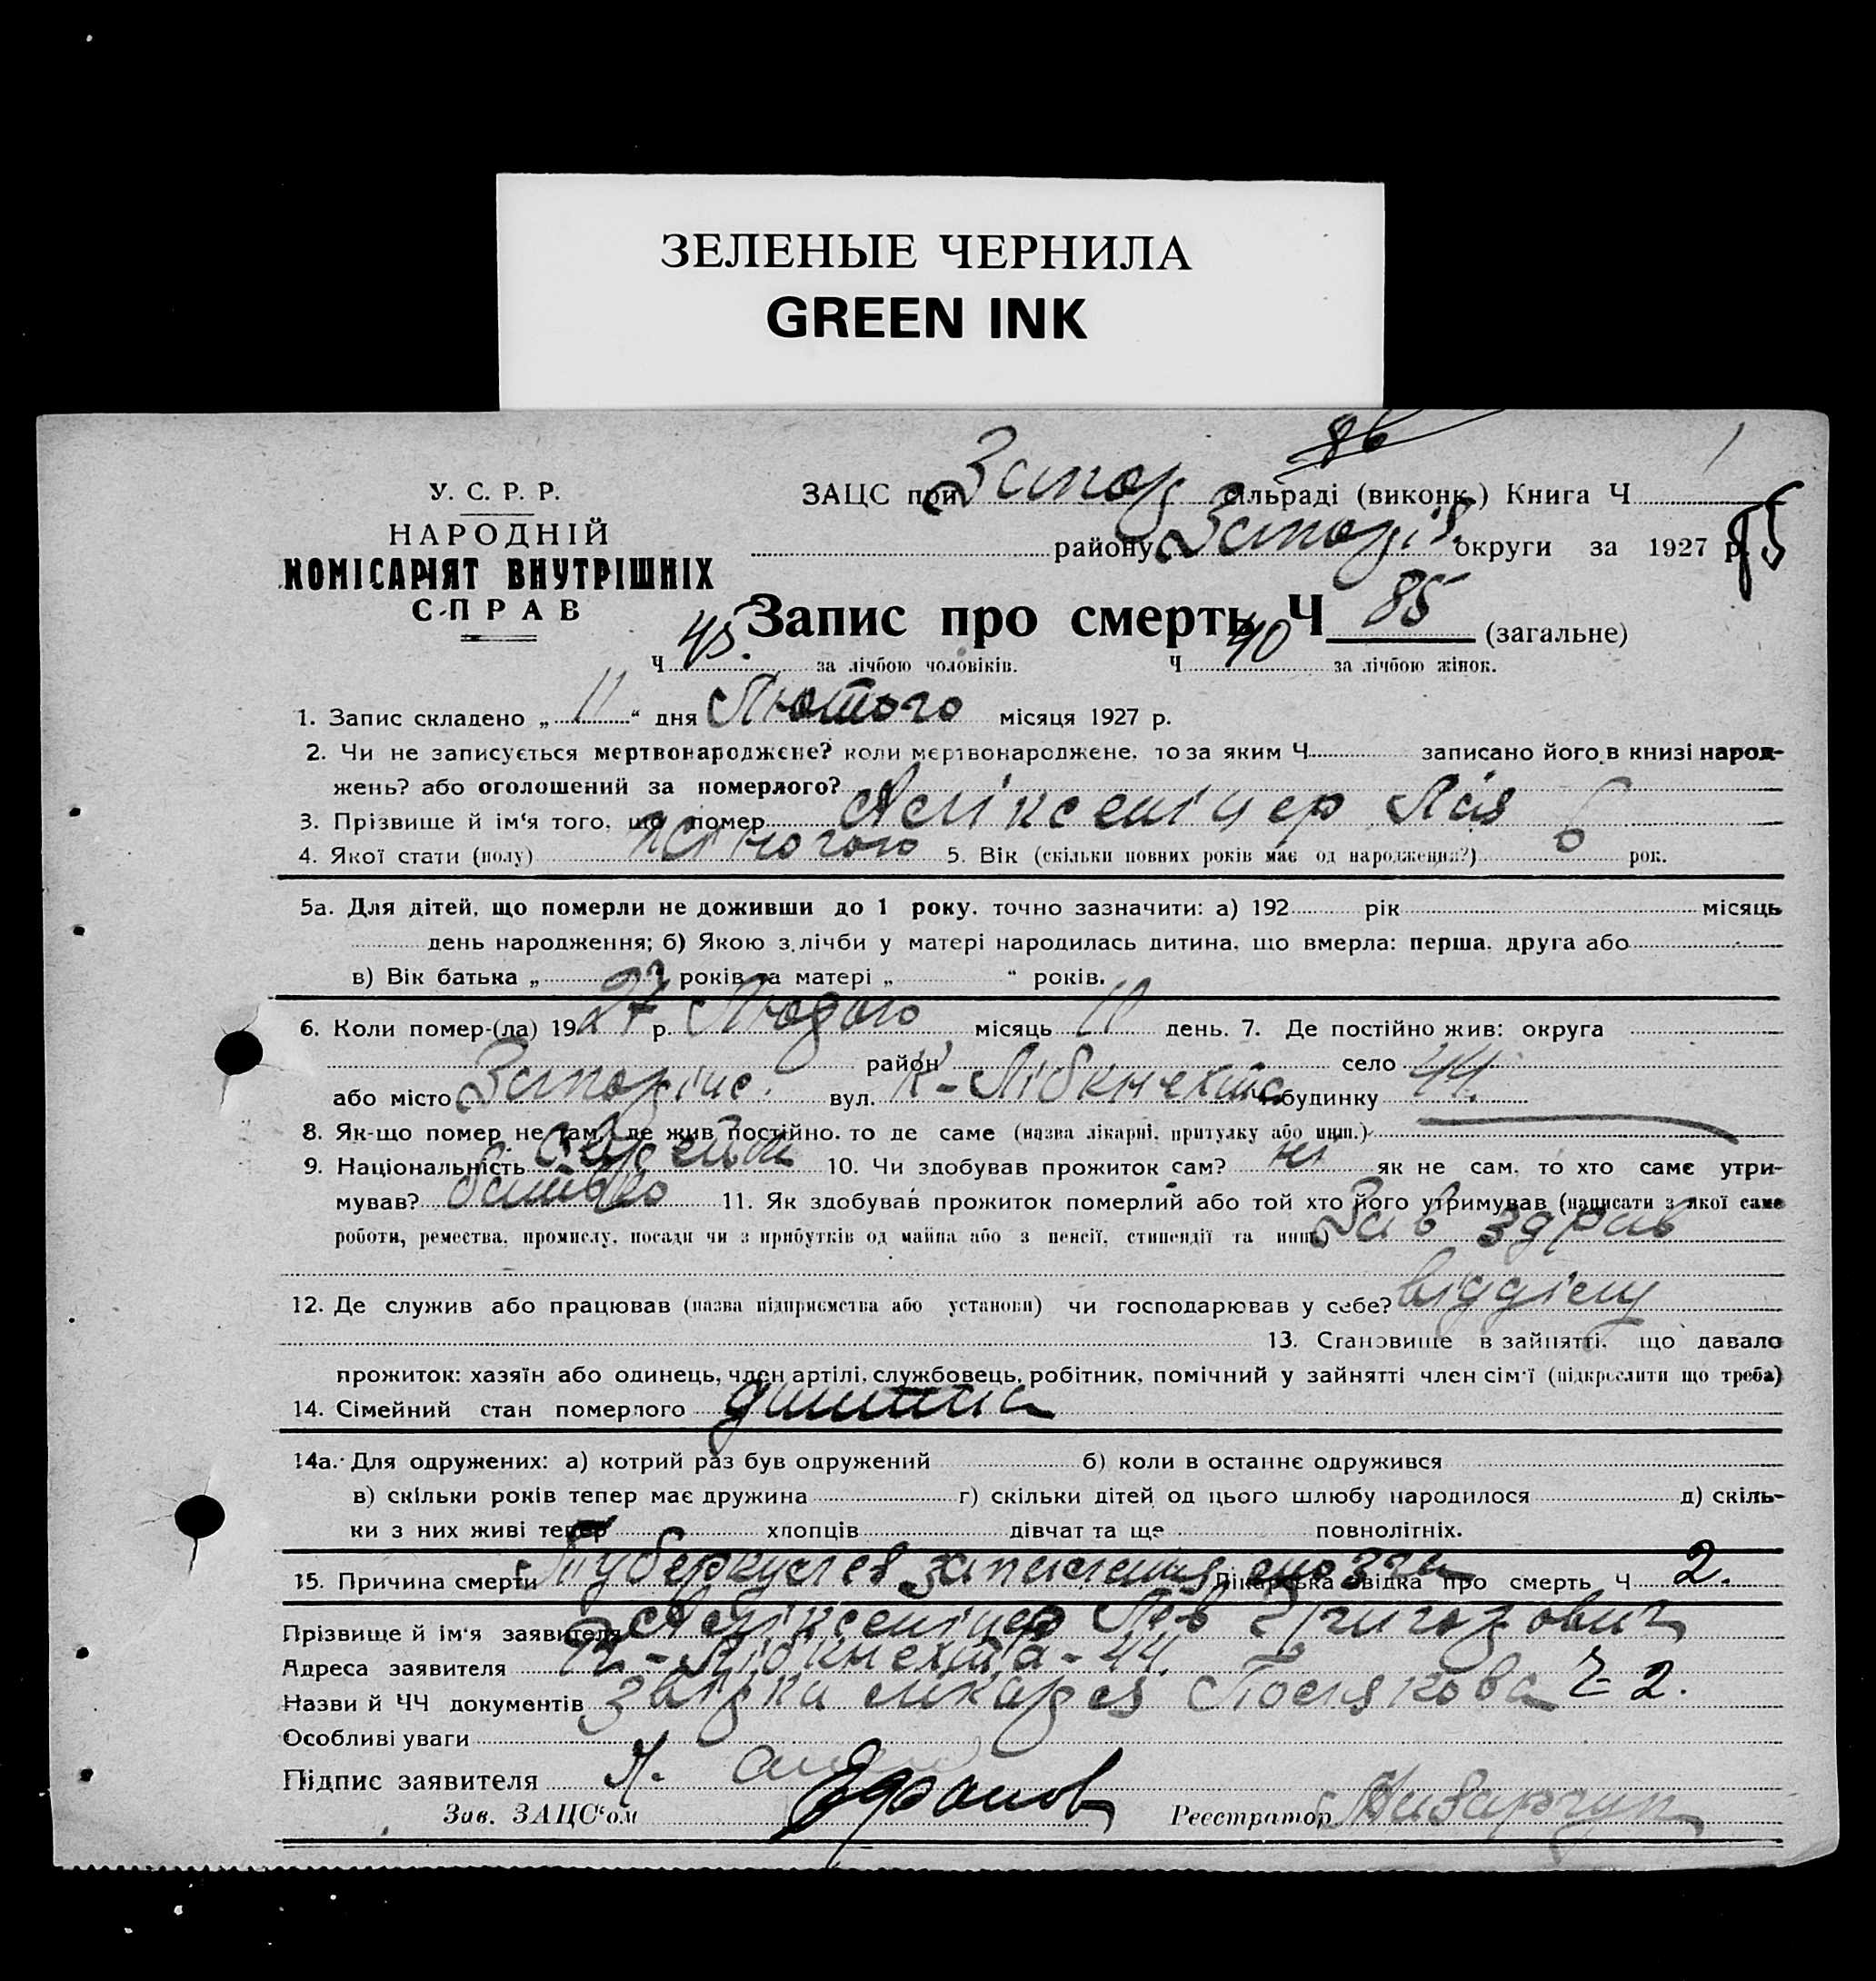 ЗЕЛЕНЫЕ ЧЕРНИЛА
GREEN INK
86
1
У. С. Р. Р.
НАРОДНІЙ
КОМІСАРІЯТ ВНУТРІШНІХ
СПРАВ
ЗАЦС при Запор сільраді (виконк.) Книга Ч
району Запоріз. округи за 1927 р. 85
Запис про смерть Ч 85 (загальне)
Ч 45. за лічбою чоловіків. Ч 40 за лічбою жінок.
1. Запис складено „ 11 “ дня Лютого місяця 1927 р.
2. Чи не записується мертвонароджене? коли мертвонароджене, то за яким Ч. записано його в книзі народ-
жень? або оголошений за померлого?
3. Прізвище й ім‘я того, що помер Ася
4. Якої стати (полу) жіночого 5. Вік (скільки повних років має од народження?) 6 рок.
5а. Для дітей, що померли не доживши до 1 року, точно зазначити: а) 192 рік місяць
день народження; б) Якою з лічби у матері народилась дитина, що вмерла: перша, друга або
в) Вік батька „ років та матері „ “ років.
6. Коли помер-(ла) 1927 р. Лютого місяць 11 день. 7. Де постійно жив: округа
район село
або місто Запоріже. вул. К-Лібкнехта Ч будинку 44.
8. Як-що помер не там, де жив постійно, то де саме (назва лікарні, притулку або инш.)
9. Національність Єврейка 10. Чи здобував прожиток сам? ні як не сам, то хто саме утри-
мував? батько 11. Як здобував прожиток померлий або той хто його утримував (написати з якої саме
роботи, ремества, промислу, посади чи з прибутків од майна або з пенсії, стипендії та инш. Зав здрав
12. Де служив або працював (назва підприємства або установи) чи господарював у себе? відділу
13. Становище в зайнятті, що давало
прожиток: хазяїн або одинець, член артілі, службовець, робітник, помічний у зайнятті член сім‘ї (підкреслити що треба)
14. Сімейний стан померлого дитина
14а. Для одружених: а) котрий раз був одружений б) коли в останнє одружився
в) скільки років тепер має дружина г) скільки дітей од цього шлюбу народилося д) скіль-
ки з них живі тепер хлопців дівчат та ще повнолітніх.
15. Причина смерти Туберкульоз запалення мозга Лікарська звідка про смерть Ч 2.
Прізвище й ім‘я заявителя Лев Григорович
Адреса заявителя К-Лібкнехта-44.
Назви й ЧЧ документів звідка лікаря Полякова Ч 2.
Особливі уваги
Підпис заявителя
Зав. ЗАЦС‘ом Реєстратор